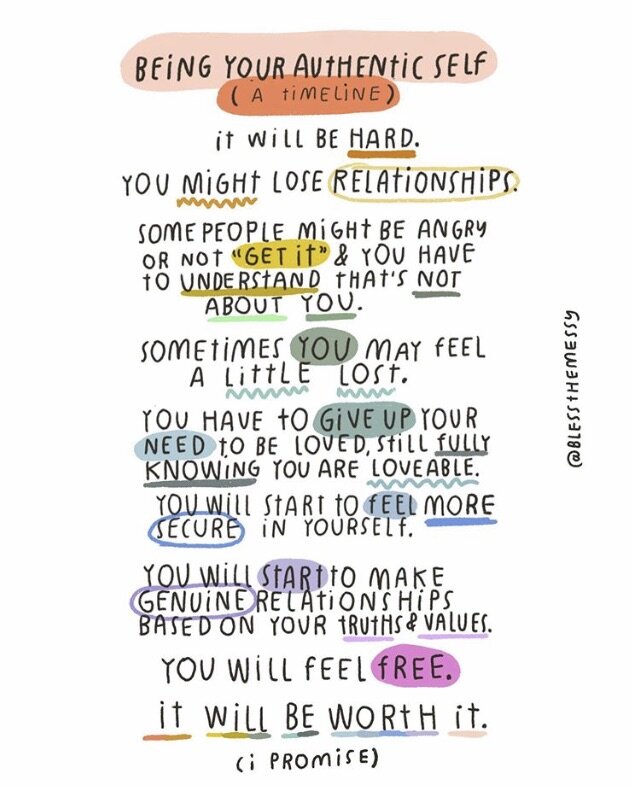 BEiNG YOUR AUtHENtiC SELf
( A tiMELiNE )
it WiLL BE HARD.
YOU MiGHt LOSE RELAtiONSHiPS.
SOME PEOPLE MiGHt BE ANGRY
OR NOt "GEt it" & YOU HAVE
tO UNDERStAND tHAt'S NOt
ABOUt YOU.
SOMEtiMES YOU MAY fEEL
A LittLE LOSt.
YOU HAVE tO GiVE UP YOUR
NEED tO BE LOVED, StiLL fULLY
KNOWiNG YOU ARE LOVEABLE.
YOU WiLL StARt tO fEEL MORE
SECURE iN YOURSELf.
YOU WiLL StARt tO MAKE
GENUiNE RELAtiONSHiPS
BASED ON YOUR tRUtHS & VALUES.
YOU WiLL fEEL fREE.
it WiLL BE WORtH it.
(i PROMiSE)
@BLESStHEMESSY